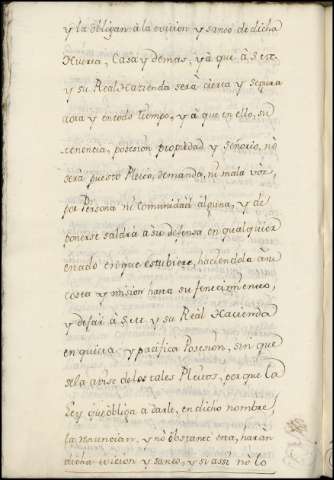 y la obligan à la evicion y saneo de dicha
Huerta, Casa y demas, y à que à S. M.
y su Real Hazienda serà cierta y segura
aora y en todo tiempo, y à que en ello, su
tenencia, posesion propiedad y señorio, no
serà puesto Pleito, demanda, ni mala voz
por Persona ni Comunidad alguna, y de
ponerse saldrà à su defensa en qualquier
estado en que estubiere, haciendola à su
costa y mision hasta su fenecimiento,
y dejar à S. M. y su Real Hacienda
en quieta y pacifica Posesion, sin que
se la avise de los tales Pleitos, por que la
Ley que obliga à darle, en dicho nombre,
la renuncian, y no obstante esta, haran
dicha evicion y saneo, y si assi no lo